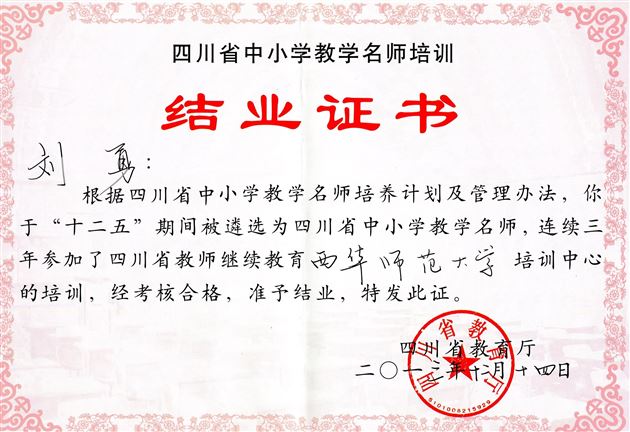 四川省中小学教学名师培训
结业证书
刘勇：
根据四川省中小学教学名师培养计划及管理办法，你
于“十二五”期间被遴选为四川省中小学教学名师，连续三
年参加了四川省教师继续教育西华师范大学培训中心
的培训，经考核合格，准予结业，特发此证。
四川省教育厅
二〇一三年十二月十四日
四川省教育厅
5101008215929